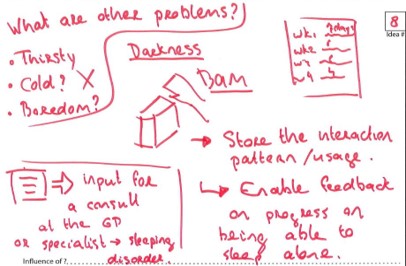 What are other problems?
• Thirsty
• Cold? X
• Boredom?
Darkness
Bam
wk1
wk2
8
Idea #
→ Store the interaction
pattern/usage.
↳ Enable feedback
on progress on
being able to
sleep alone.
⇒ input for
a consult
at the GP
or specialist → sleeping
disorder.
Influence of ?